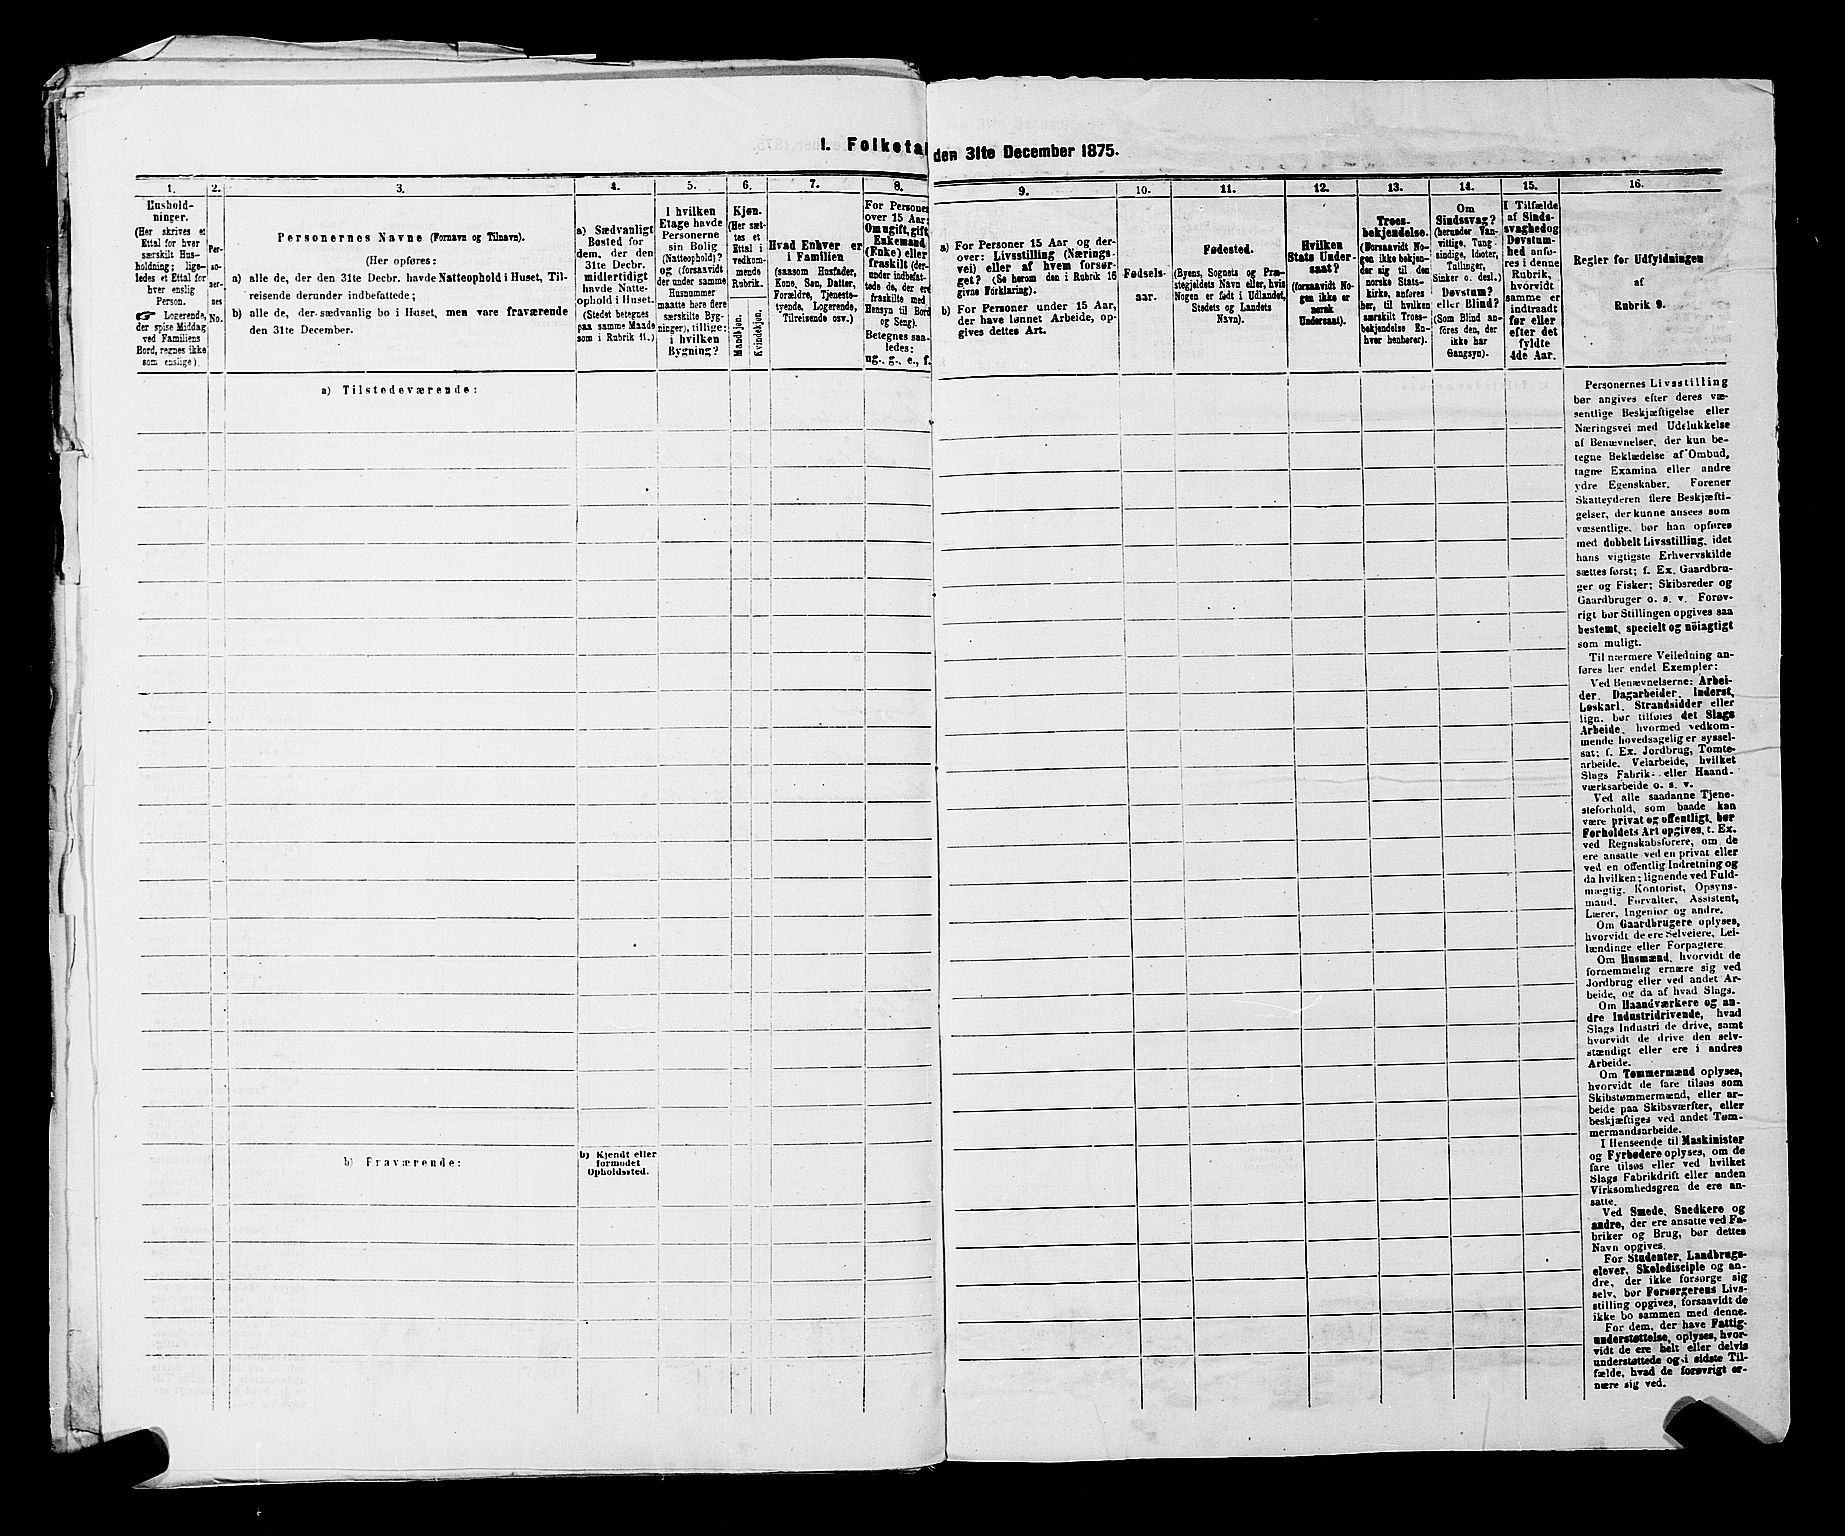 I. Folketal
den 31te December 1875.
1.
Husholdninger.
(Her skrives et
Ettal for hver
særskilt Husholdning; ligeledes et Ettal for
hver enslig
Person.
☞ Logerende,
der spise Middag
ved Familiens
Bord, regnes ikke
som enslige).
2.
Personernes
No.
3.
Personernes Navne (Fornavn og Tilnavn).
(Her opføres:
a) alle de, der den 31te Decbr. havde Natteophold i Huset, Tilreisende derunder indbefattede;
b) alle de, der sædvanlig bo i Huset, men vare fraværende
den 31te December.
4.
a) Sædvanligt
Bosted for
dem, der den
31te Decbr.
midlertidigt
havde Natteophold i Huset.
(Stedet betegnes
paa samme Maade
som i Rubrik 11.)
5.
I hvilken
Etage havde
Personerne
sin Bolig
(Natteophold)?
og (forsaavidt
der under samme
Husnummer
maatte høre flere
særskilte Bygninger), tillige:
i hvilken
Bygning?
6.
Kjøn.
(Her sættes et
Ettal i
vedkommende
Rubrik.
Mandkjøn.
Kvindekjøn.
7.
Hvad Enhver er
i Familien
(saasom Husfader,
Kone, Søn, Datter,
Forældre, Tjenestetyende, Logerende,
Tilreisende osv.)
8.
For Personer
over 15 Aar:
Om ugift, gift,
Enkemand
(Enke) eller
fraskilt (derunder indbefattede de, der ere
fraskilte med
Hensyn til Bord
og Seng).
Betegnes saaledes:
ug., g., e., f.
9.
a) For Personer 15 Aar og derover: Livsstilling (Næringsvei) eller af hvem forsørget? (Se herom den i Rubrik 16
givne Forklaring).
b) For Personer under 15 Aar,
der have lønnet Arbeide, opgives dettes Art.
10.
Fødselsaar.
11.
Fødested.
(Byens, Sognets og Præstegjeldets Navn eller, hvis
Nogen er født i Udlandet,
Stedets og Landets
Navn).
12.
Hvilken
Stats Undersaat?
(forsaavidt Nogen ikke er
norsk
Undersaat).
13.
Troesbekjendelse.
(Forsaavidt Nogen ikke bekjender sig til den
norske Statskirke, anføres
her, til hvilken
særskilt Troesbekjendelse Enhver henhører).
14.
Om
Sindssvag?
(herunder Vanvittige, Tungsindige, Idioter,
Tullinger,
Sinker o. desl.)
Døvstum?
eller Blind?
(Som Blind anføres den, der
ikke har
Gangsyn).
15.
I Tilfælde
af Sindssvaghed og
Døvstumhed anføres i denne
Rubrik,
hvorvidt
samme er
indtraadt
før eller
efter det
fyldte
4de Aar.
16.
Regler for Udfyldningen
af
Rubrik 9.
a) Tilstedeværende:
b) Fraværende:
b) Kjendt eller
formodet
Opholdssted.
Personernes Livsstilling
bør angives efter deres væsentlige Beskjæftigelse eller
Næringsvei med Udelukkelse
af Benævnelser, der kun betegne Beklædelse af Ombud,
tagne Examina eller andre
ydre Egenskaber. Forener
Skatteyderen flere Beskjæftigelser, der kunne ansees som
væsentlige, bør han opføres
med dobbelt Livsstilling, idet
hans vigtigste Erhvervskilde
sættes først; f. Ex. Gaardbruger og Fisker; Skibsreder og
Gaardbruger o. s. v. Forøvrigt bør Stillingen opgives saa
bestemt, specielt og nöiagtigt
som muligt.
Til nærmere Veiledning anføres her endel Exempler:
Ved Benævnelserne: Arbeider, Dagarbeider, Inderst,
Løskarl, Strandsidder eller
lign. bør tilføies det Slags
Arbeide, hvormed vedkommende hovedsagelig er sysselsat; f. Ex. Jordbrug, Tomtearbeide, Veiarbeide, hvilket
Slags Fabrik- eller Haandværksarbeide o. s. v.
Ved alle saadanne Tjenesteforhold, som baade kan
være privat og offentligt, bør
Forholdets Art opgives, t. Ex.
ved Regnskabsførere, om de
ere ansatte ved en privat eller
ved en offentlig Indretning og
da hvilken; lignende ved Fuldmægtig, Kontorist, Opsynsmand, Forvalter, Assistent,
Lærer, Ingeniør og andre.
Om Gaardbrugere oplyses,
hvorvidt de ere Selveiere, Leilændinge eller Forpagtere.
Om Husmænd, hvorvidt de
fornemmelig ernære sig ved
Jordbrug eller ved andet Arbeide, og da af hvad Slags.
Om Haandværkere og andre Industridrivende, hvad
Slags Industri de drive, samt
hvorvidt de drive den selvstændigt eller ere i andres
Arbeide.
Om Tømmermænd oplyses,
hvorvidt de fare tilsøs som
Skibstømmermænd, eller arbeide paa Skibsværfter, eller
beskjæftiges ved andet Tømmermandsarbeide.
I Henseende til Maskinister
og Fyrbødere oplyses, om de
fare tilsøs eller ved hvilket
Slags Fabrikdrift eller anden
Virksomhedsgren de ere ansatte.
Ved Smede, Snedkere og
andre, der ere ansatte ved Fabriker og Brug, bør dettes
Navn opgives.
For Studenter, Landbrugselever, Skoledisciple og andre, der ikke forsørge sig
selv, bør Forsørgerens Livsstilling opgives, forsaavidt de
ikke bo sammen med denne.
For dem, der have Fattigunderstøttelse, oplyses, hvorvidt de ere helt eller delvis
understøttede og i sidste Tilfælde, hvad de forøvrigt ernære sig ved.